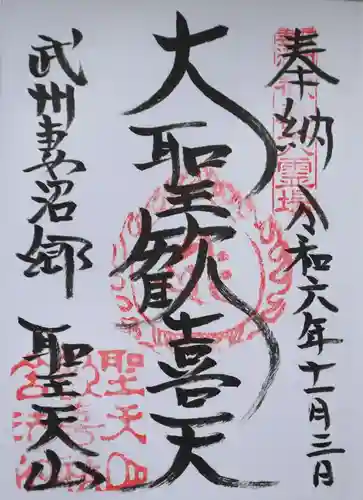 奉納 令和六年十一月三日
大聖歓喜天
武州妻沼郷 聖天山